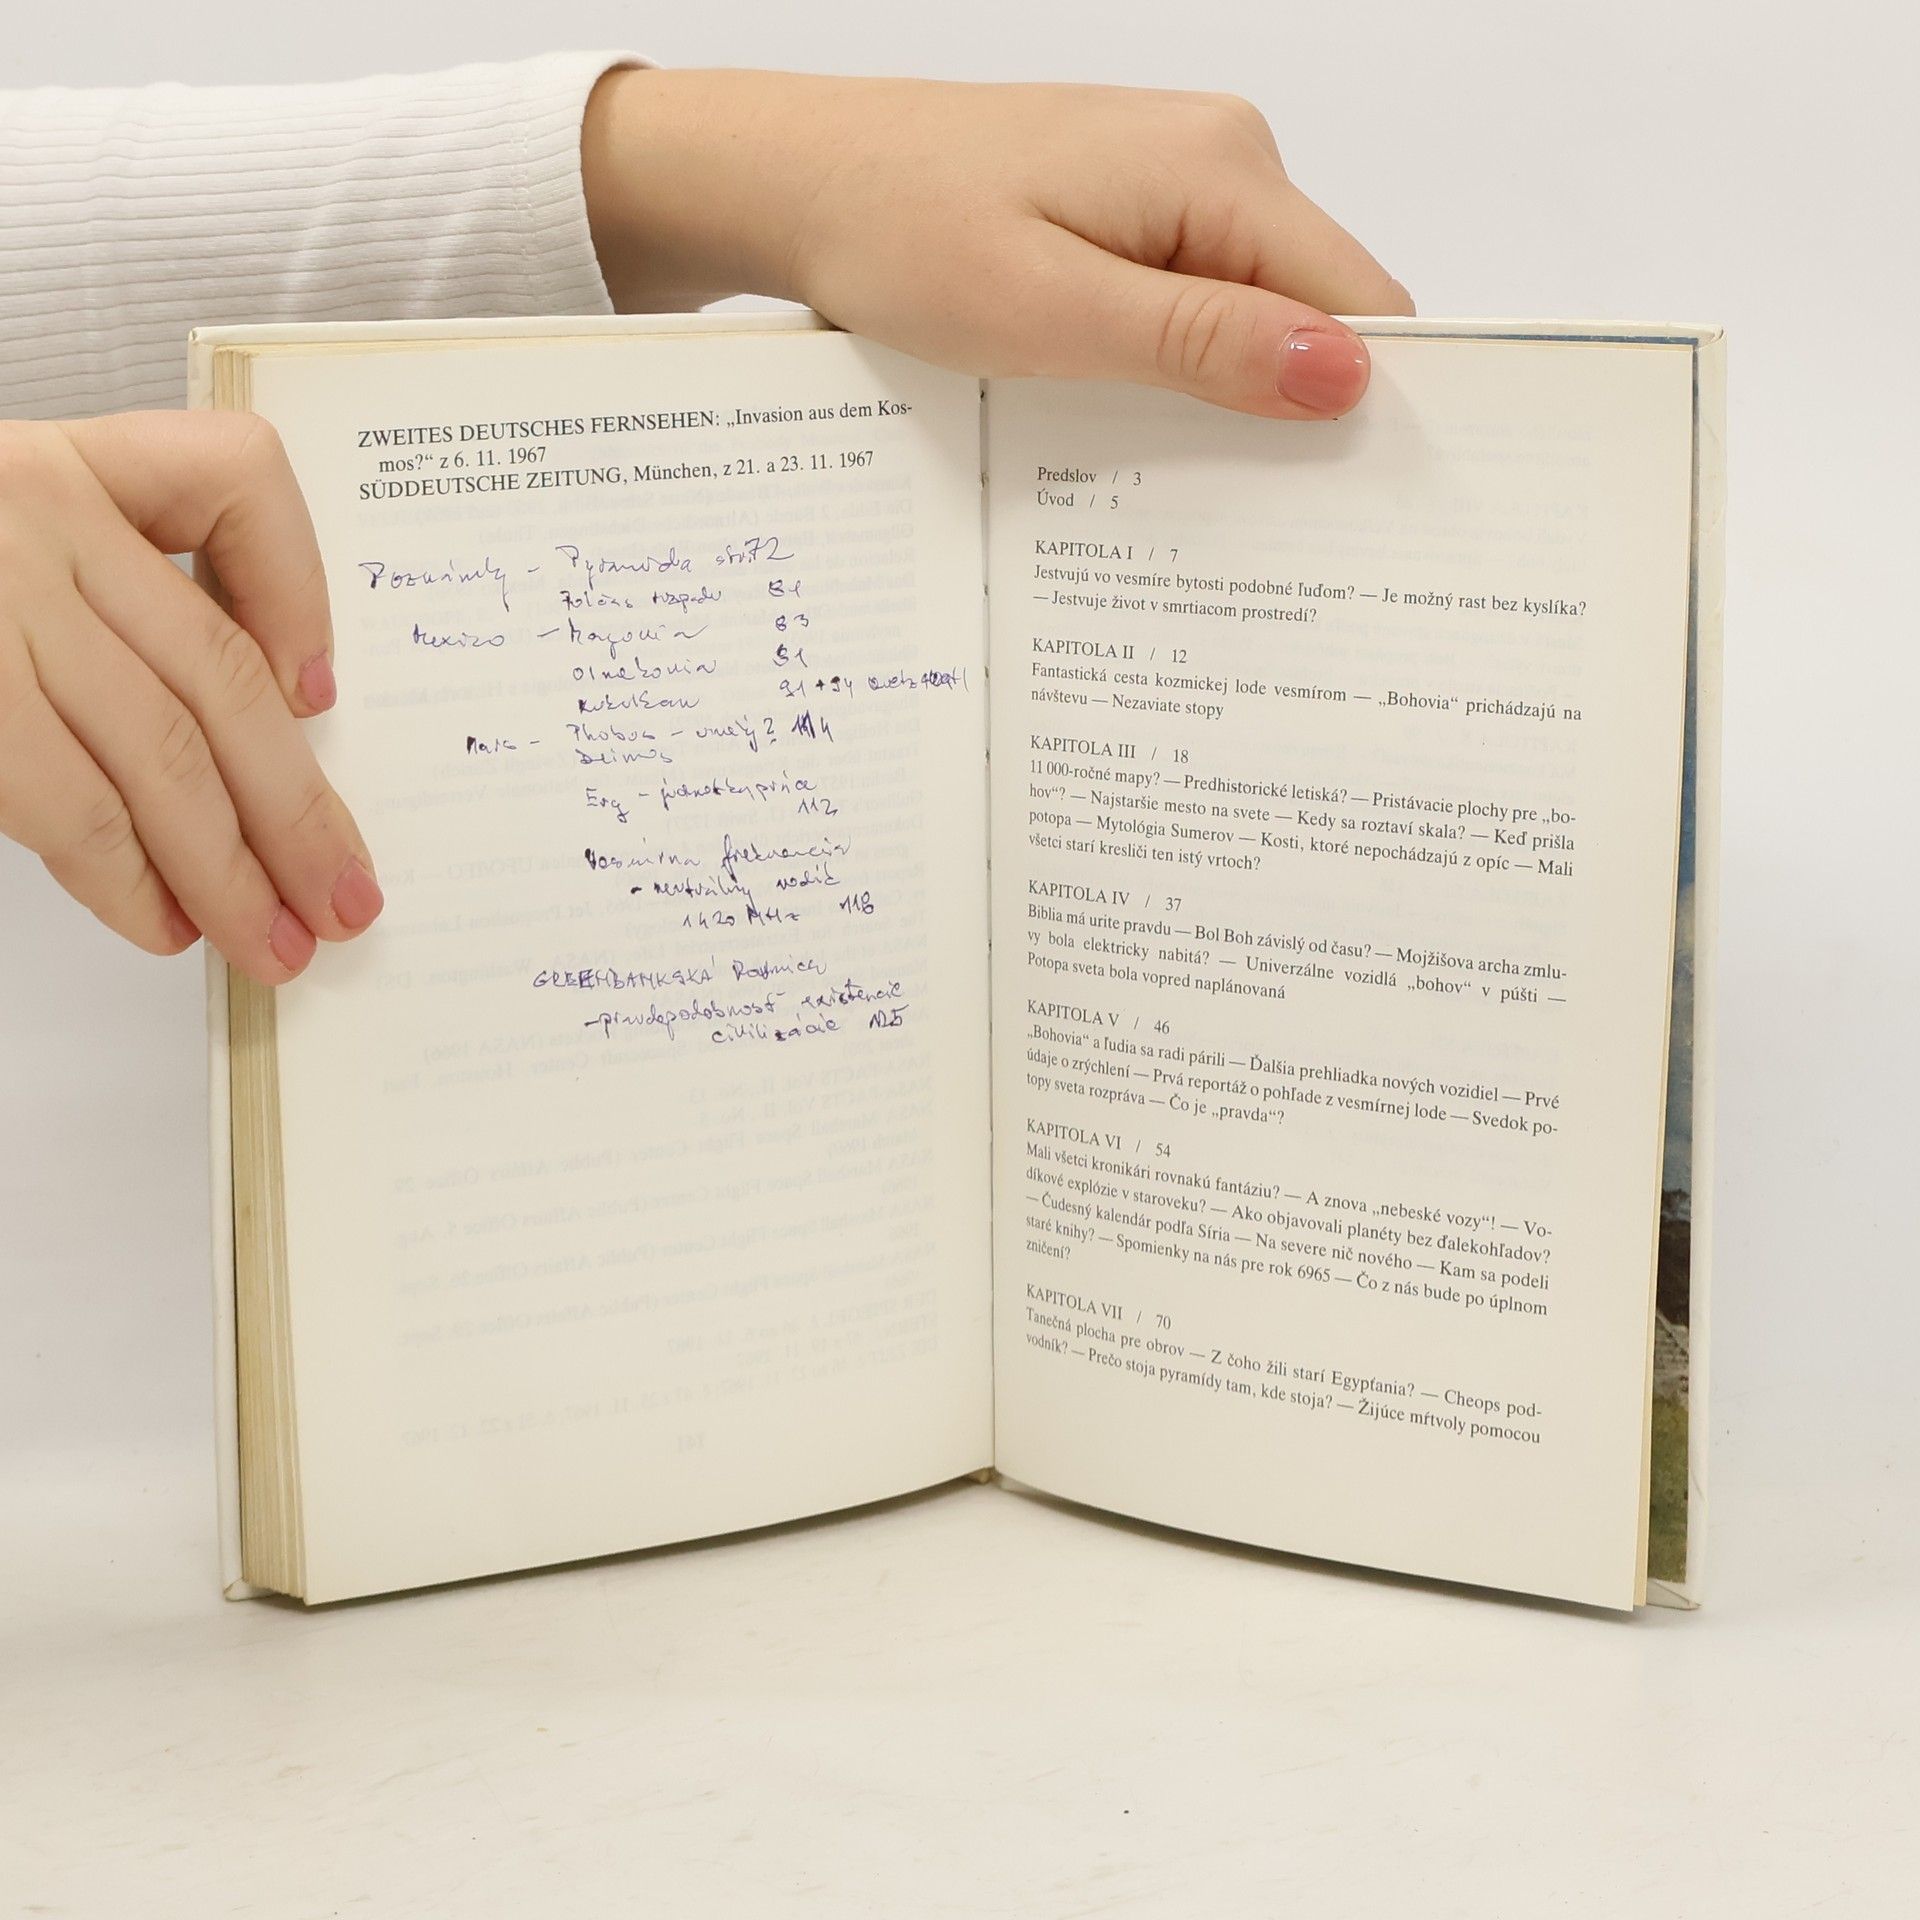 ZWEITES DEUTSCHES FERNSEHEN: „Invasion aus dem Kos-
mos?“ z 6. 11. 1967
SÜDDEUTSCHE ZEITUNG, München, z 21. a 23. 11. 1967
Poznámky – Pyramída str. 72
Polčas rozpadu 81
Mexiko –
83
91
Kukulkan 91 + 94
Mars – Phobos – umelý? 114
Deimos
Erg – jednotky práce
112
Vesmírna frekvencia
- neutrálny vodík
1420 MHz 118
GREENBANKSKÁ Rovnica
– pravdepodobnosť existencie
civilizácie 125
Predslov / 3
Úvod / 5
KAPITOLA I / 7
Jestvujú vo vesmíre bytosti podobné ľuďom? — Je možný rast bez kyslíka?
— Jestvuje život v smrtiacom prostredí?
KAPITOLA II / 12
Fantastická cesta kozmickej lode vesmírom — „Bohovia“ prichádzajú na
návštevu — Nezaviate stopy
KAPITOLA III / 18
11 000-ročné mapy? — Predhistorické letiská? — Pristávacie plochy pre „bo-
hov“? — Najstaršie mesto na svete — Kedy sa roztaví skala? — Keď prišla
potopa — Mytológia Sumerov — Kosti, ktoré nepochádzajú z opíc — Mali
všetci starí kresliči ten istý vrtoch?
KAPITOLA IV / 37
Biblia má urite pravdu — Bol Boh závislý od času? — Mojžišova archa zmlu-
vy bola elektricky nabitá? — Univerzálne vozidlá „bohov“ v púšti —
Potopa sveta bola vopred naplánovaná
KAPITOLA V / 46
„Bohovia“ a ľudia sa radi párili — Ďalšia prehliadka nových vozidiel — Prvé
údaje o zrýchlení — Prvá reportáž o pohľade z vesmírnej lode — Svedok po-
topy sveta rozpráva — Čo je „pravda“?
KAPITOLA VI / 54
Mali všetci kronikári rovnakú fantáziu? — A znova „nebeské vozy“! — Vo-
díkové explózie v staroveku? — Ako objavovali planéty bez ďalekohľadov?
— Čudesný kalendár podľa Síria — Na severe nič nového — Kam sa podeli
staré knihy? — Spomienky na nás pre rok 6965 — Čo z nás bude po úplnom
zničení?
KAPITOLA VII / 70
Tanečná plocha pre obrov — Z čoho žili starí Egypťania? — Cheops pod-
vodník? — Prečo stoja pyramídy tam, kde stoja? — Žijúce mŕtvoly pomocou